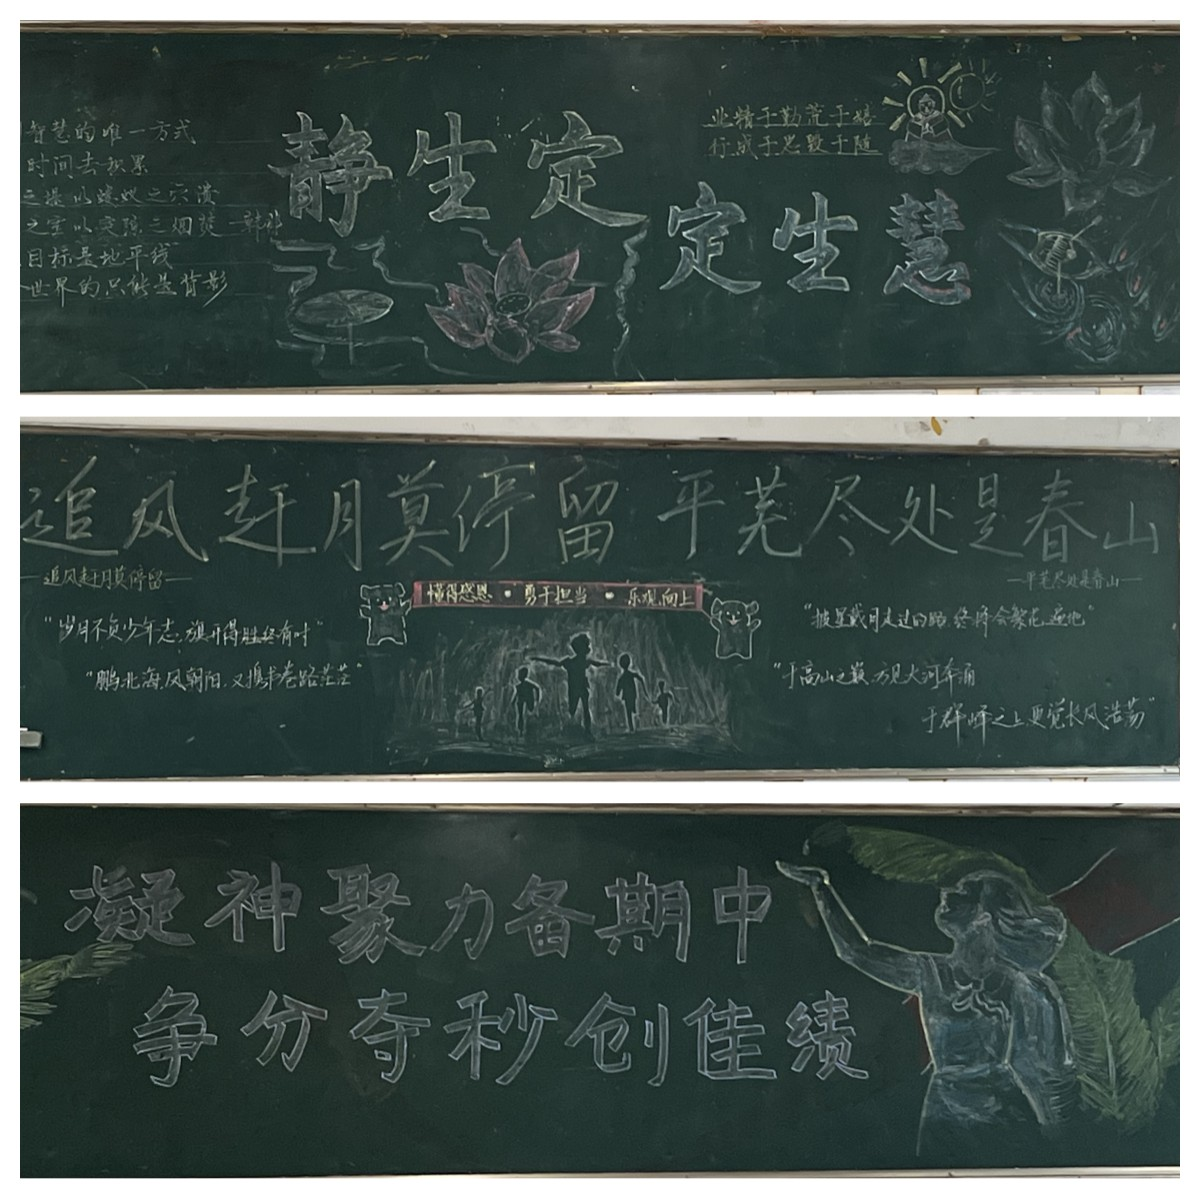 智慧的唯一方式
时间去积累
之堤以蝼蚁之穴溃
之室以突隙之烟焚 韩非
目标是地平线
世界的只能是背影
静生定
业精于勤荒于嬉
行成于思毁于随
定生慧
追风赶月莫停留 平芜尽处是春山
—追风赶月莫停留—
—平芜尽处是春山—
懂得感恩·勇于担当·乐观向上
"岁月不负少年志,旗开得胜终有时"
"鹏北海,凤朝阳.又携书卷路茫茫"
"披星戴月走过的路 终将会繁花遍地"
"于高山之巅,方见大河奔涌
于群峰之上更觉长风浩荡"
凝神聚力备期中
争分夺秒创佳绩